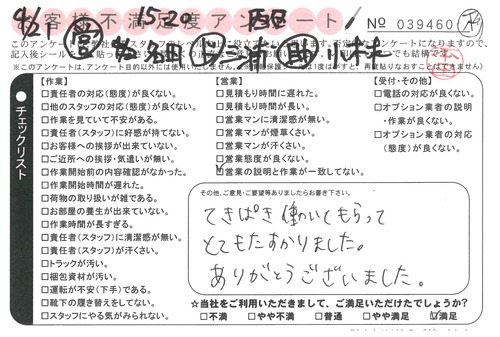 お客様不満足度アンケート
No 039460
4/21 営 1520
石田 三浦 小林
※このアンケートは、アンケート目的以外には使用いたしません。
チェックリスト
【作業】
□責任者の対応(態度)が良くない。
□他のスタッフの対応(態度)が良くない。
□作業を見ていて不安がある。
□責任者(スタッフ)に好感が持てない。
□お客様への挨拶が出来ていない。
□ご近所への挨拶・気遣いが無い。
□作業開始前の内容確認がなかった。
□作業開始時間が遅れた。
□荷物の取り扱いが雑である。
□お部屋の養生が出来ていない。
□作業時間が長すぎる。
□責任者(スタッフ)に清潔感が無い。
□責任者(スタッフ)が汗くさい。
□トラックが汚い。
□梱包資材が汚い。
□運転が不安(下手)である。
□靴下の履き替えをしてない。
□スタッフにやる気がみられない。
【営業】
□見積もり時間に遅れた。
□見積もり時間が長い。
□営業マンに清潔感が無い。
□営業マンが煙草くさい。
□営業マンが汗くさい。
□営業態度が良くない。
☑営業の説明と作業が一致してない。
【受付・その他】
□電話の対応が良くない。
□オプション業者の説明
・作業が良くない。
□オプション業者の対応
(態度)が良くない。
その他、ご意見・ご要望等ありましたらお書き下さい。
てきぱき働いてもらって
とてもたすかりました。
ありがとうございました。
☆当社をご利用いただきまして、ご満足いただけたでしょうか?
□不満 □やや不満 □普通 □やや満足 ☑満足